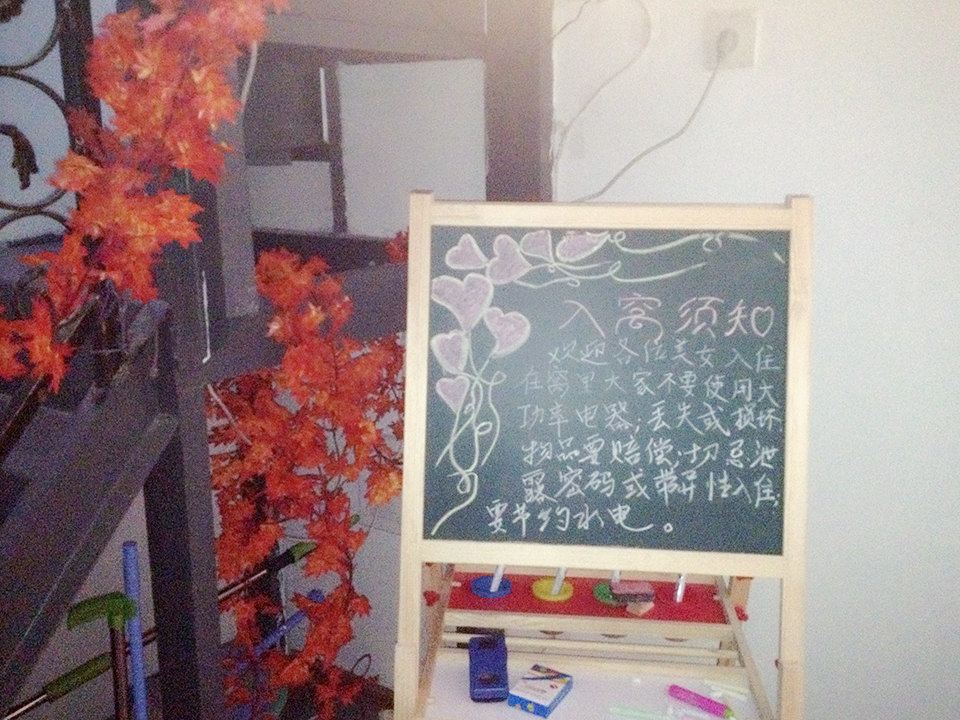 入窝须知
欢迎各位美女入住
在窝里大家不要使用大
功率电器;丢失或损坏
物品要赔偿.切忌泄
露密码或带异性入住;
要节约水电。